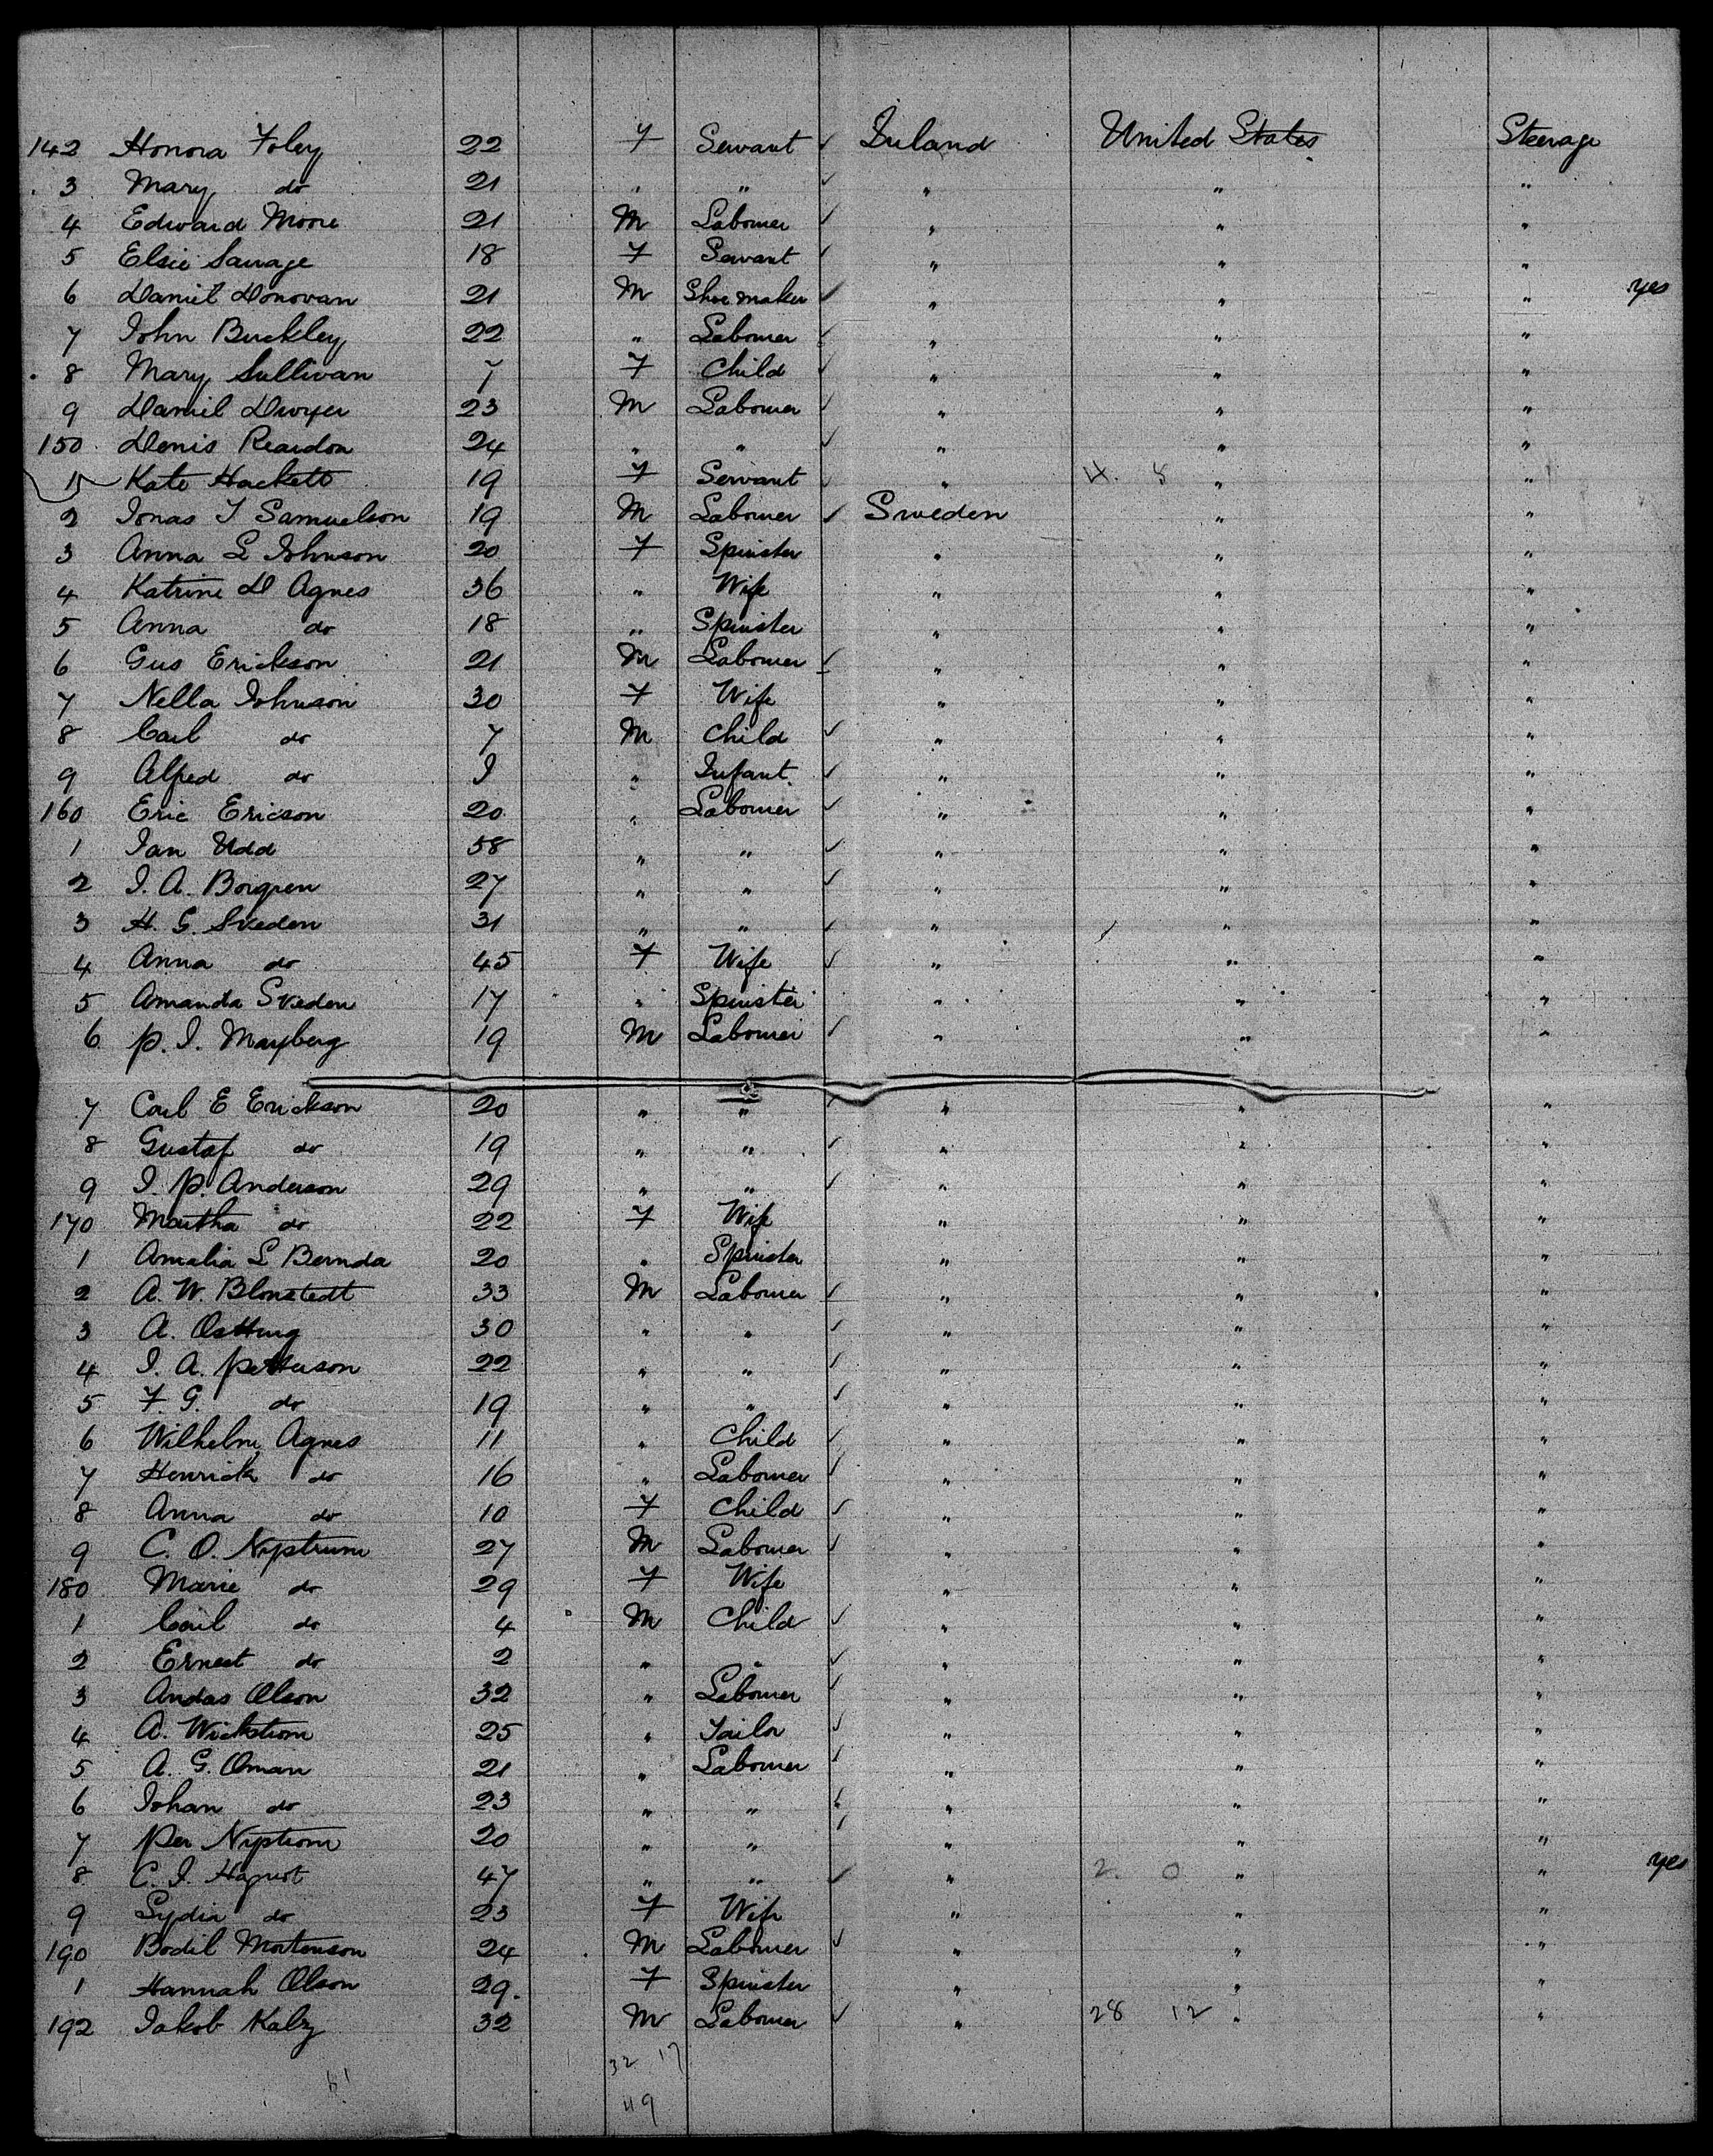 142 Honora Foley 22 F Servant ✓ Ireland United States Steerage
3 Mary do 21 " " ✓ " " "
4 Edward Moore 21 M Labourer ✓ " " "
5 Elsie Savage 18 F Servant ✓ " " "
6 Daniel Donovan 21 M Shoemaker ✓ " " " yes
7 John Buckley 22 " Labourer ✓ " " "
8 Mary Sullivan 7 F Child ✓ " " "
9 Daniel Dwyer 23 M Labourer ✓ " " "
150 Denis Reardon 24 " " ✓ " " "
1 Kate Hackett 19 F Servant ✓ " 4. 8 " "
2 Jonas J Samuelson 19 M Labourer ✓ Sweden " "
3 Anna L Johnson 20 F Spinster " " "
4 Katrine D Agnes 36 " Wife " " "
5 Anna do 18 " Spinster " " "
6 Gus Erickson 21 M Labourer ✓ " " "
7 Nella Johnson 30 F Wife " " "
8 Carl do 7 M Child ✓ " " "
9 Alfred do I " Infant ✓ " " "
160 Eric Ericson 20 " Labourer ✓ " " "
1 Jan Udd 58 " " ✓ " " "
2 J. A. Borgren 27 " " ✓ " " "
3 H. G. Sveden 31 " " ✓ " " "
4 Anna do 45 F Wife ✓ " " "
5 Amanda Sveden 17 " Spinster " " "
6 P. J. Mayberg 19 M Labourer ✓ " " "
7 Carl E Erickson 20 " " ✓ " " "
8 Gustaf do 19 " " ✓ " " "
9 J. P. Anderson 29 " " ✓ " " "
170 Martha do 22 F Wife " " "
1 Amalia L Bernda 20 " Spinster " " "
2 A. W. Blomstedt 33 M Labourer ✓ " " "
3 A. 30 " " ✓ " " "
4 J. A. Petterson 22 " " ✓ " " "
5 F. G. do 19 " " ✓ " " "
6 Wilhelm Agnes 11 " Child ✓ " " "
7 Henrick do 16 " Labourer ✓ " " "
8 Anna do 10 F Child ✓ " " "
9 C. O. Nystrum 27 M Labourer ✓ " " "
180 Marie do 29 F Wife " " "
1 Carl do 4 M Child ✓ " " "
2 Ernest do 2 " " ✓ " " "
3 Andas Olson 32 " Labourer ✓ " " "
4 A. Wickstrom 25 " Tailor ✓ " " "
5 A. G. Oman 21 " Labourer ✓ " " "
6 Johan do 23 " " ✓ " " "
7 Per Nystrom 20 " " ✓ " " "
8 C. J. 47 " " ✓ " 2. 0 " " yes
9 Lydia do 23 F Wife " " "
190 Bodil Mortenson 24 M Labourer ✓ " " "
1 Hannah Olson 29. F Spinster " " "
192 Jakob Kalz 32 M Labourer ✓ " 28 12 " "
32 17
49